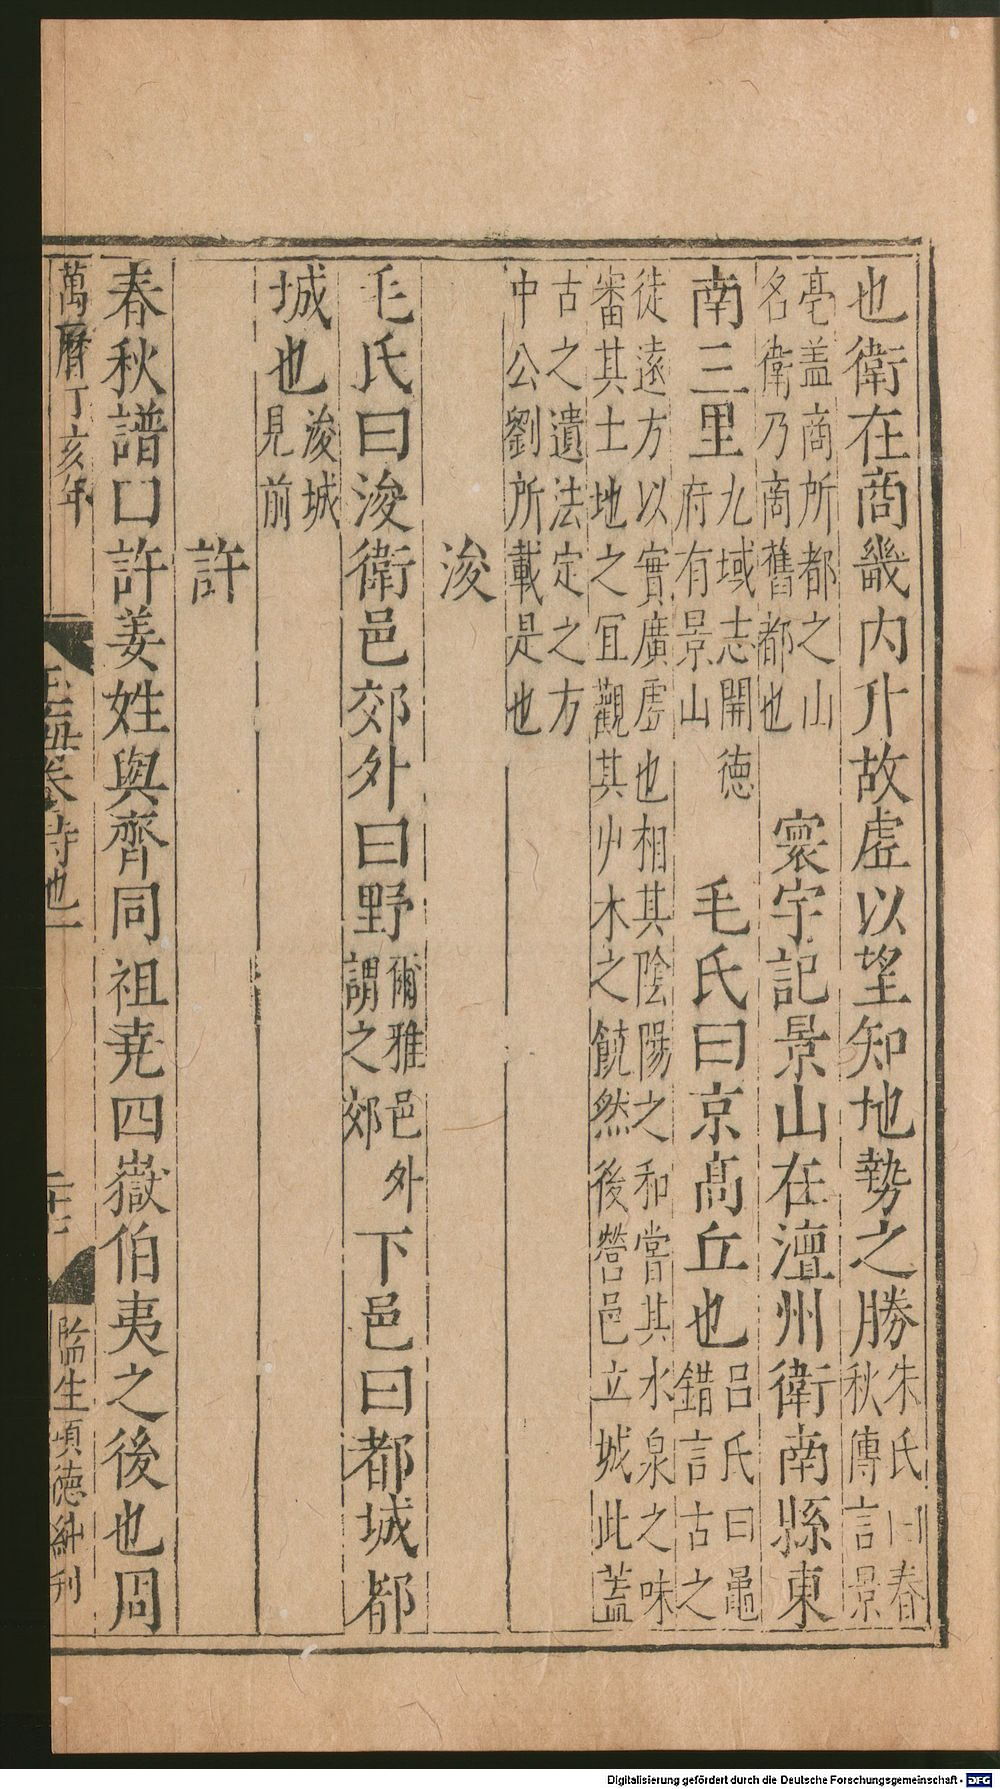 也衛在商畿内升故虛以望知地勢之勝朱氏曰春秋傳言景
亳盖商所都之山名衛乃商舊都也 寰宇記景山在澶州衛南縣東
南三里九域志開德府有景山 毛氏曰京髙丘也呂氏曰黽錯言古之
徒遠方以實廣虛也相其陰陽之和嘗其水泉之味
審其土地之宜觀其艸木之饒然後營邑立城此蓋
古之遺法定之方
中公劉所載是也
浚
毛氏曰浚衛邑郊外曰野爾雅邑外謂之郊下邑曰都城都
城也浚城見前
許
春秋譜曰許姜姓與齊同祖堯四嶽伯夷之後也周
萬曆丁亥年 詩地一 監生項德純刊
Digitalisierung gefördert durch die Deutsche Forschungsgemeinschaft - DFG